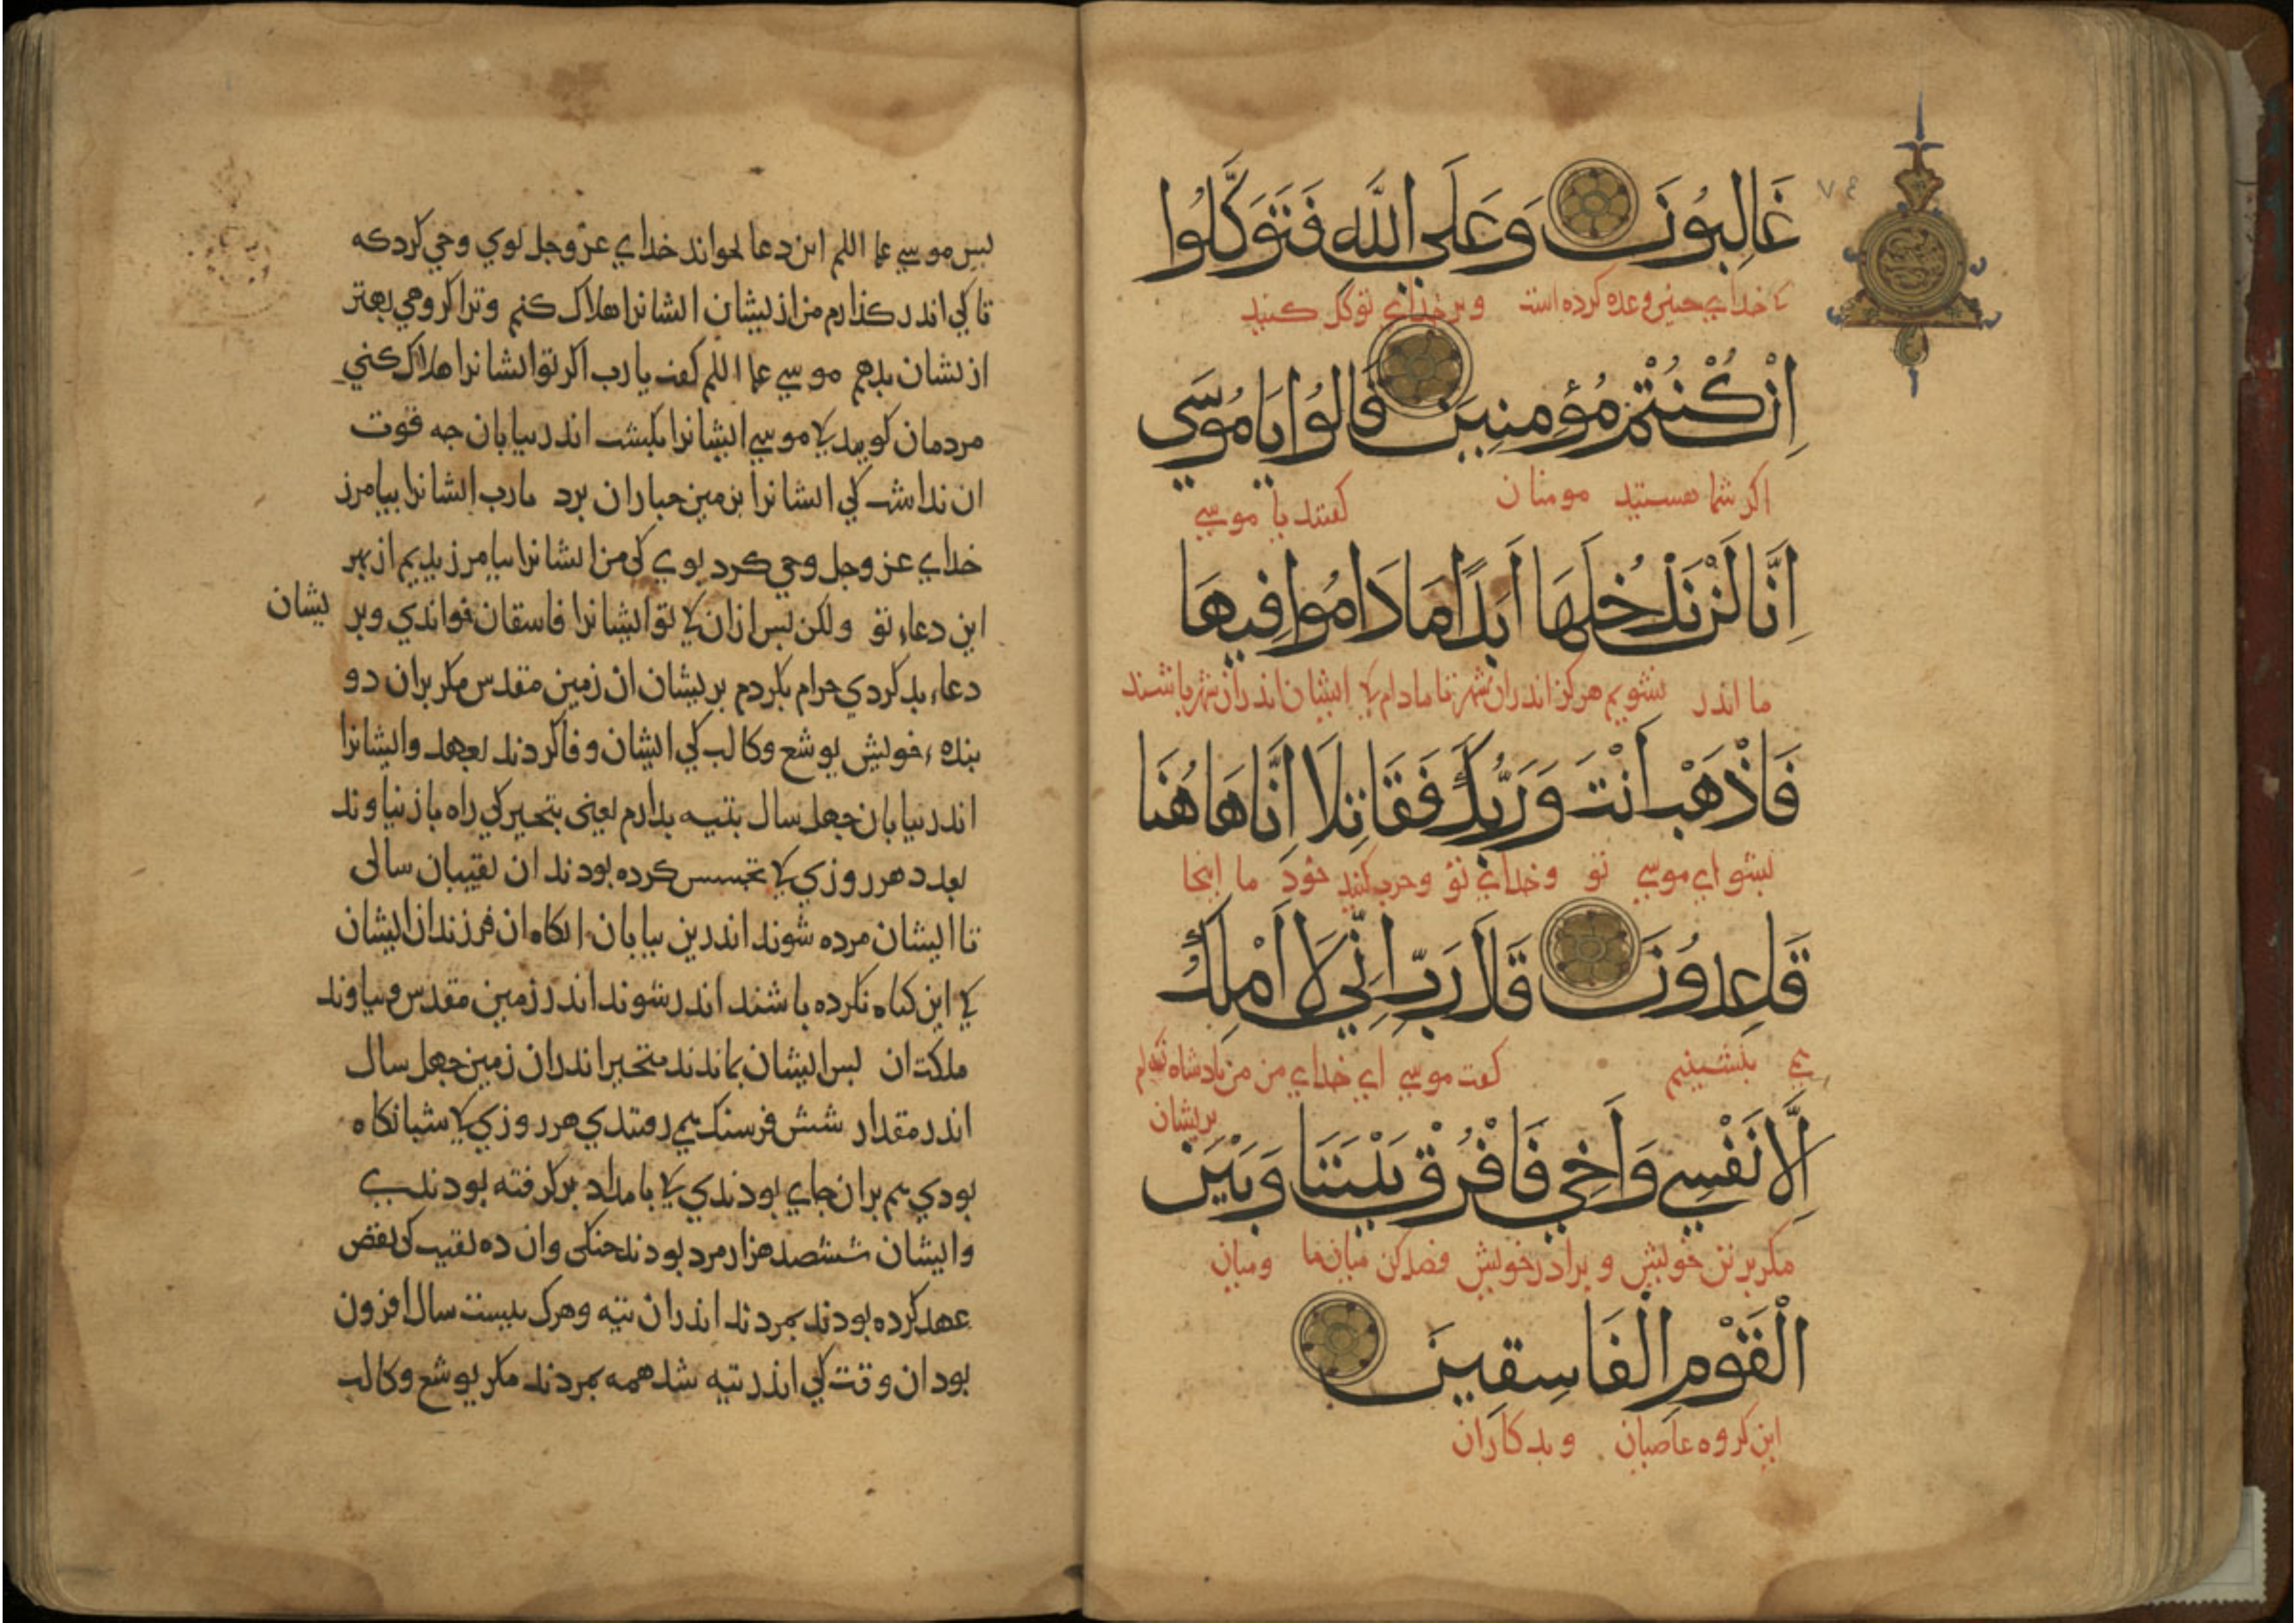 غَالِبُونَ وَعَلَى اللَّهِ فَتَوَكَّلُوا
کی خدای چنین وعده کرده است وبر خدای توکل کنید
اِنْ كُنْتُمْ مُؤمِنِينَ قَالُوا يَا مُوسَى
اکر شما هستید مومنان کفتند یا موسی
اِنَّا لَنْ نَدْخُلَهَا اَبَدًا مَا دَامُوا فِيهَا
ما اندر نشویم هرکز اندران شهر تا مادام کی ایشان اندران شهر باشند
فَاذْهَبْ اَنْتَ وَرَبُّكَ فَقَاتِلَا اِنَّا هَاهُنَا
بشو ای موسی تو وخدای تو وحرب کنید خود ما اینجا
قَاعِدُونَ قَالَ رَبِّ اِنِّي لَا اَمْلِكُ
می بنشینیم کفت موسی ای خدای من من پادشاه نه ام
بریشان
اِلَّا نَفْسِي وَاَخِي فَافْرُقْ بَيْنَنَا وَبَيْنَ
مکر بر تن خویش و برادر خویش فصل کن میان ما ومیان
الْقَوْمِ الْفَاسِقِينَ
این کروه عاصیان وبدکاران
بس موسی علیه السلم این دعا بخواند خدای عزوجل بوی وحی کرد که
تا کی اندر کذارم من از یشان ایشانرا هلاک کنم وترا کروهی بهتر
از یشان بدهم موسی علیه السلم کفت یا رب اکر تو ایشانرا هلاک کنی
مردمان کویند کی موسی ایشانرا بکشت اندر بیابان جه قوت
ان نداشت کی ایشانرا بزمین جباران برد یا رب ایشانرا بیامرز
خدای عزوجل وحی کرد بوی کی من ایشانرا بیامرزیدیم از بهر
این دعاء تو ولکن بس ازان کی تو ایشانرا فاسقان خواندی وبر یشان
دعاء بد کردی حرام بکردم بریشان ان زمین مقدس مکر بران دو
بنده خویش یوشع وکالب کی ایشان وفا کردند بعهد وایشانرا
اندر بیابان جهل سال بتیه بدارم یعنی بتحیر کی راه باز نیاوند
بعدد هر روزی کی تجسس کرده بودند ان نقیبان سالی
تا ایشان مرده شوند اندرین بیابان انکاه ان فرزندان ایشان
کی این کناه نکرده باشند اندر شوند اندر زمین مقدس وبیاوند
ملکت ان بس ایشان بماندند متحیر اندران زمین جهل سال
اندر مقدار شش فرسنک می رفتندی هر روزی کی شبانکاه
بودی هم بران جای بودندی کی بامداد برکرفته بودند
وایشان ششصد هزار مرد بودند جنکی وان ده نقیب کی نقض
عهد کرده بودند بمردند اندران تیه وهرک بیست سال افزون
بود ان وقت کی اندر تیه شد همه بمردند مکر یوشع وکالب